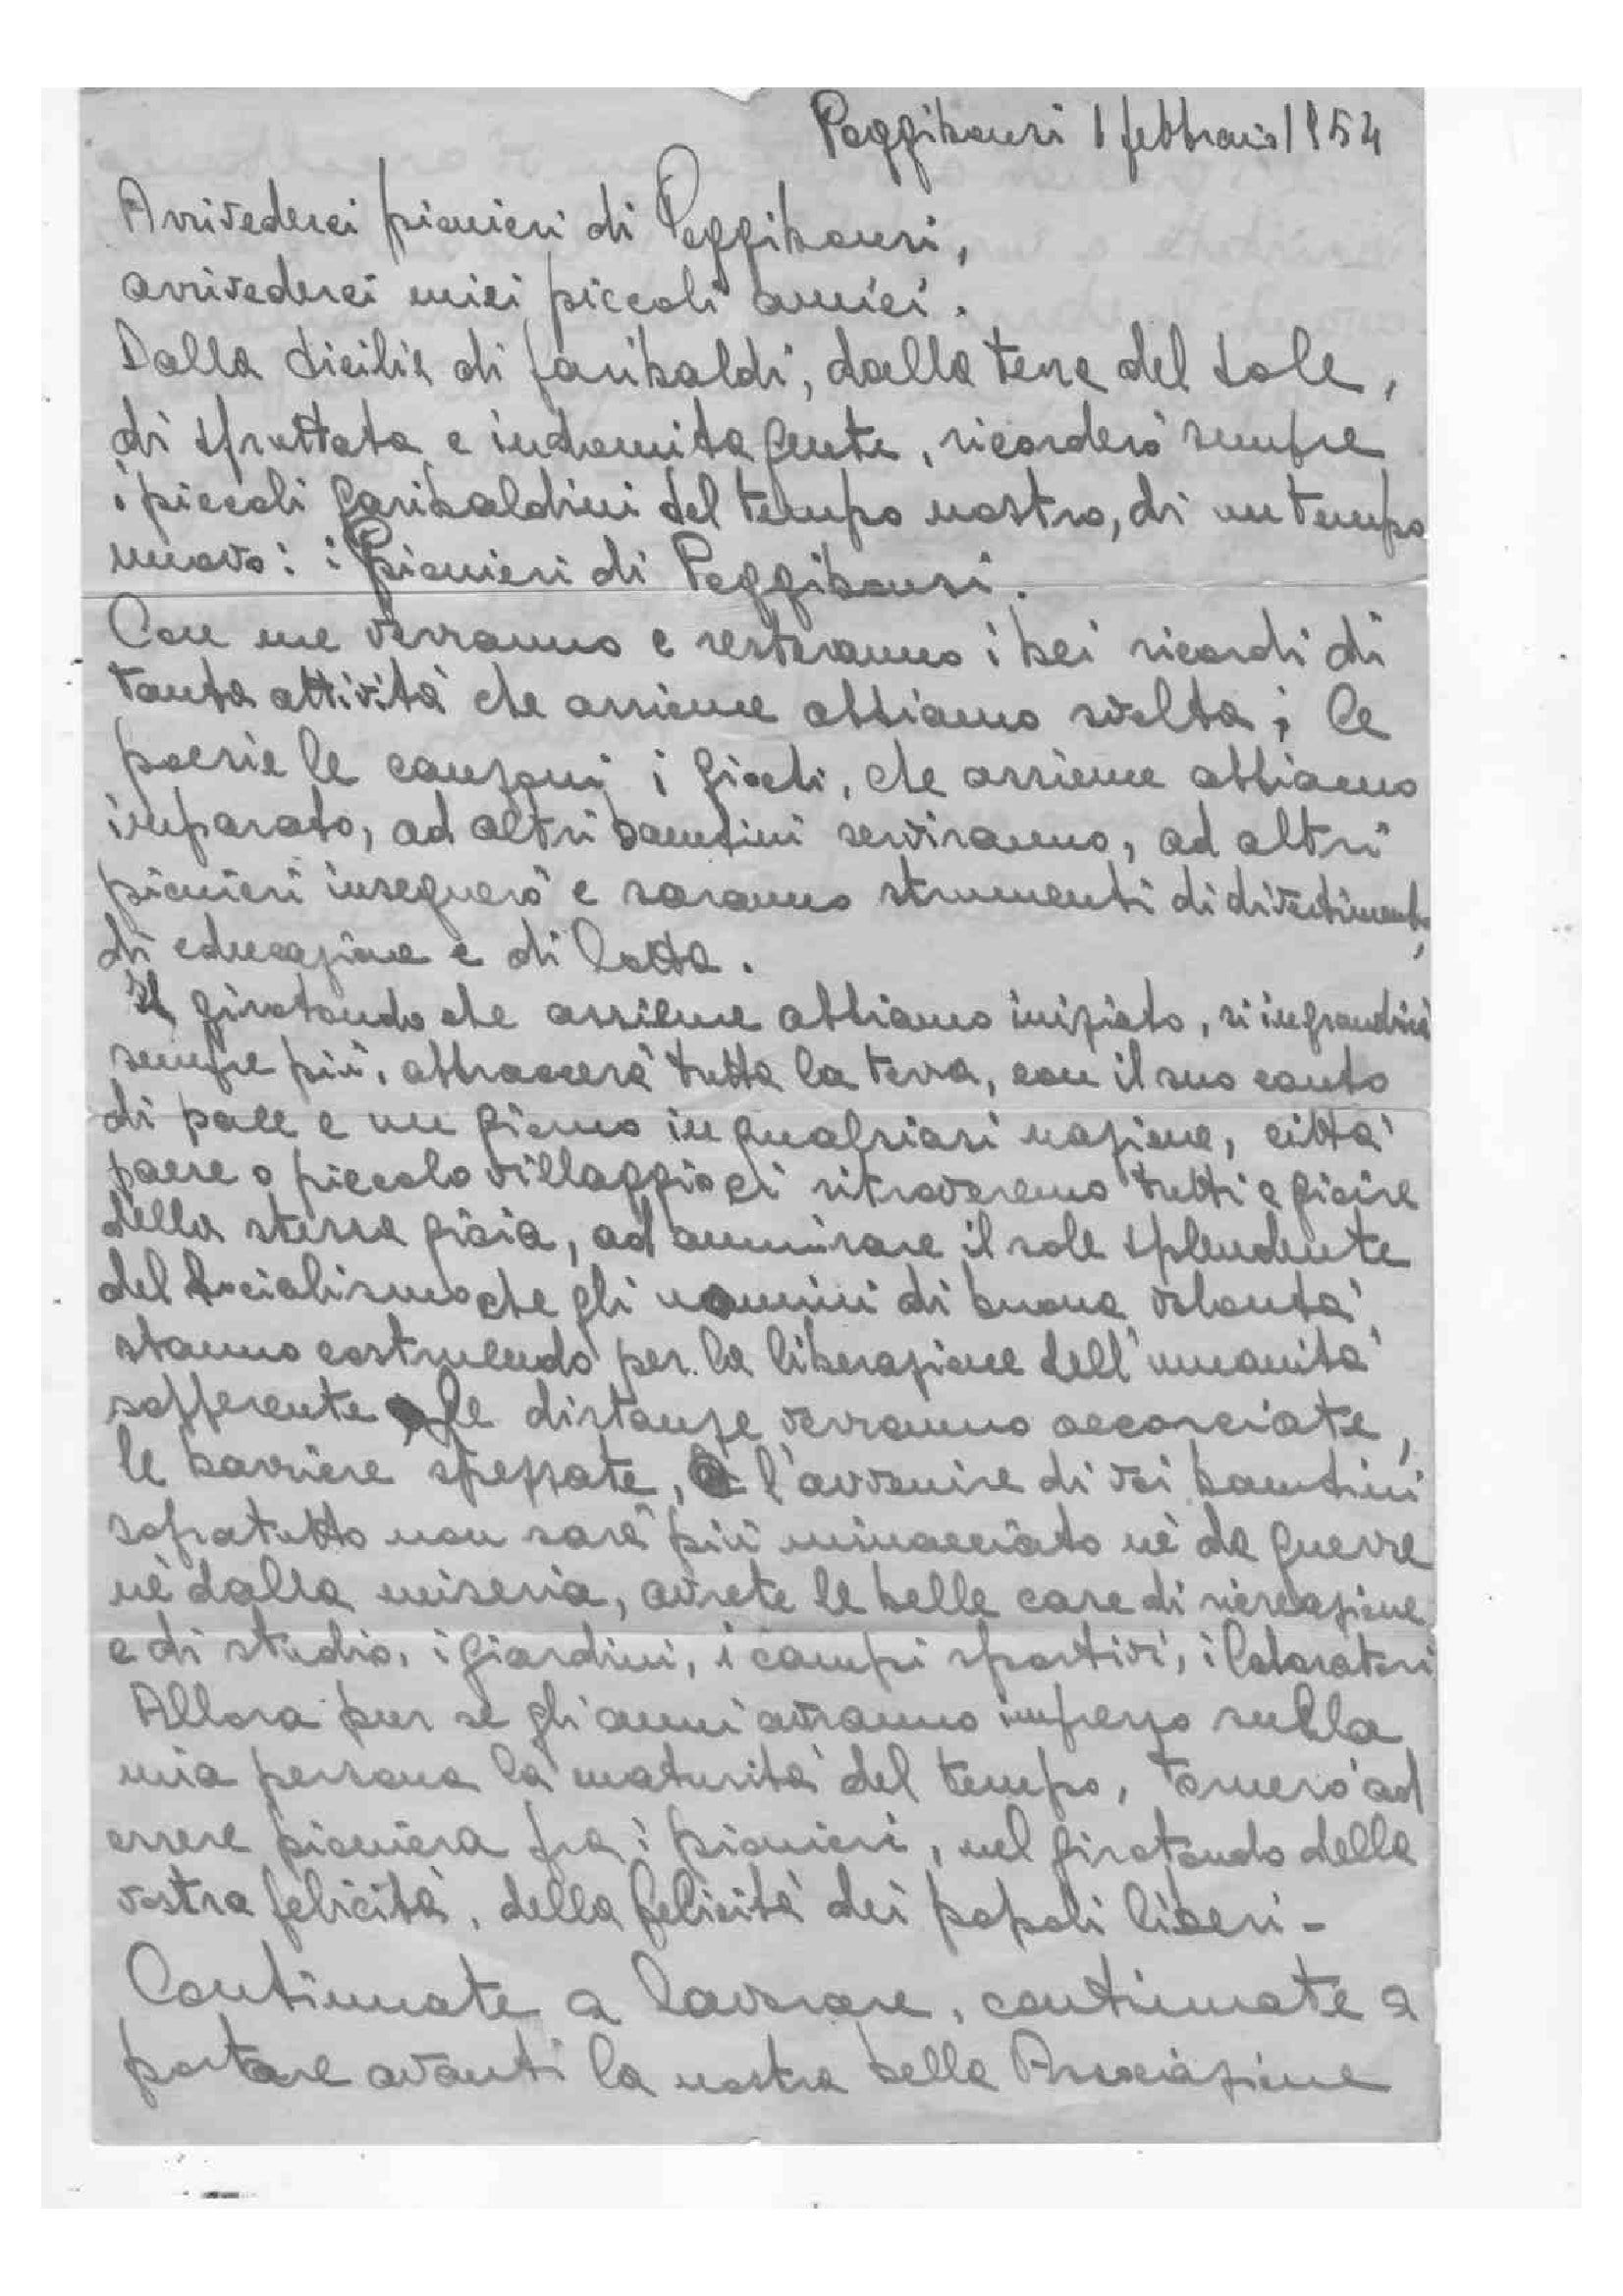 Poggibonsi 1 febbraio 1954
Arrivederci pionieri di Poggibonsi,
arrivederci miei piccoli amici.
Dalla Sicilia di Garibaldi, dalla terra del sole,
di sfruttata e indomita gente, ricorderò sempre
i piccoli garibaldini del tempo nostro, di un tempo
nuovo: i Pionieri di Poggibonsi.
Con me verranno e resteranno i bei ricordi di
tanta attività che assieme abbiamo svolta; le
poesie le canzoni i giochi, che assieme abbiamo
imparato, ad altri bambini serviranno, ad altri
pionieri insegnerò e saranno strumenti di divertimento,
di educazione e di lotta.
Il girotondo che assieme abbiamo iniziato, si ingrandirà
sempre più, abbraccerà tutta la terra, con il suo canto
di pace e un giorno in qualsiasi nazione, città
paese o piccolo villaggio ci ritroveremo tutti a gioire
della stessa gioia, ad ammirare il sole splendente
del Socialismo che gli uomini di buona volontà
stanno costruendo per la liberazione dell'umanità
sofferente le distanze verranno accorciate,
le barriere spezzate, e l'avvenire di voi bambini
sopratutto non sarà più minacciato nè da guerre
nè dalla miseria, avrete le belle case di ricreazione
e di studio, i giardini, i campi sportivi, i laboratori
Allora pur se gli anni avranno impresso sulla
mia persona la maturità del tempo, tornerò ad
essere pioniera fra i pionieri, nel girotondo della
vostra felicità, della felicità dei popoli liberi -
Continuate a lavorare, continuate a
portare avanti la nostra bella Associazione